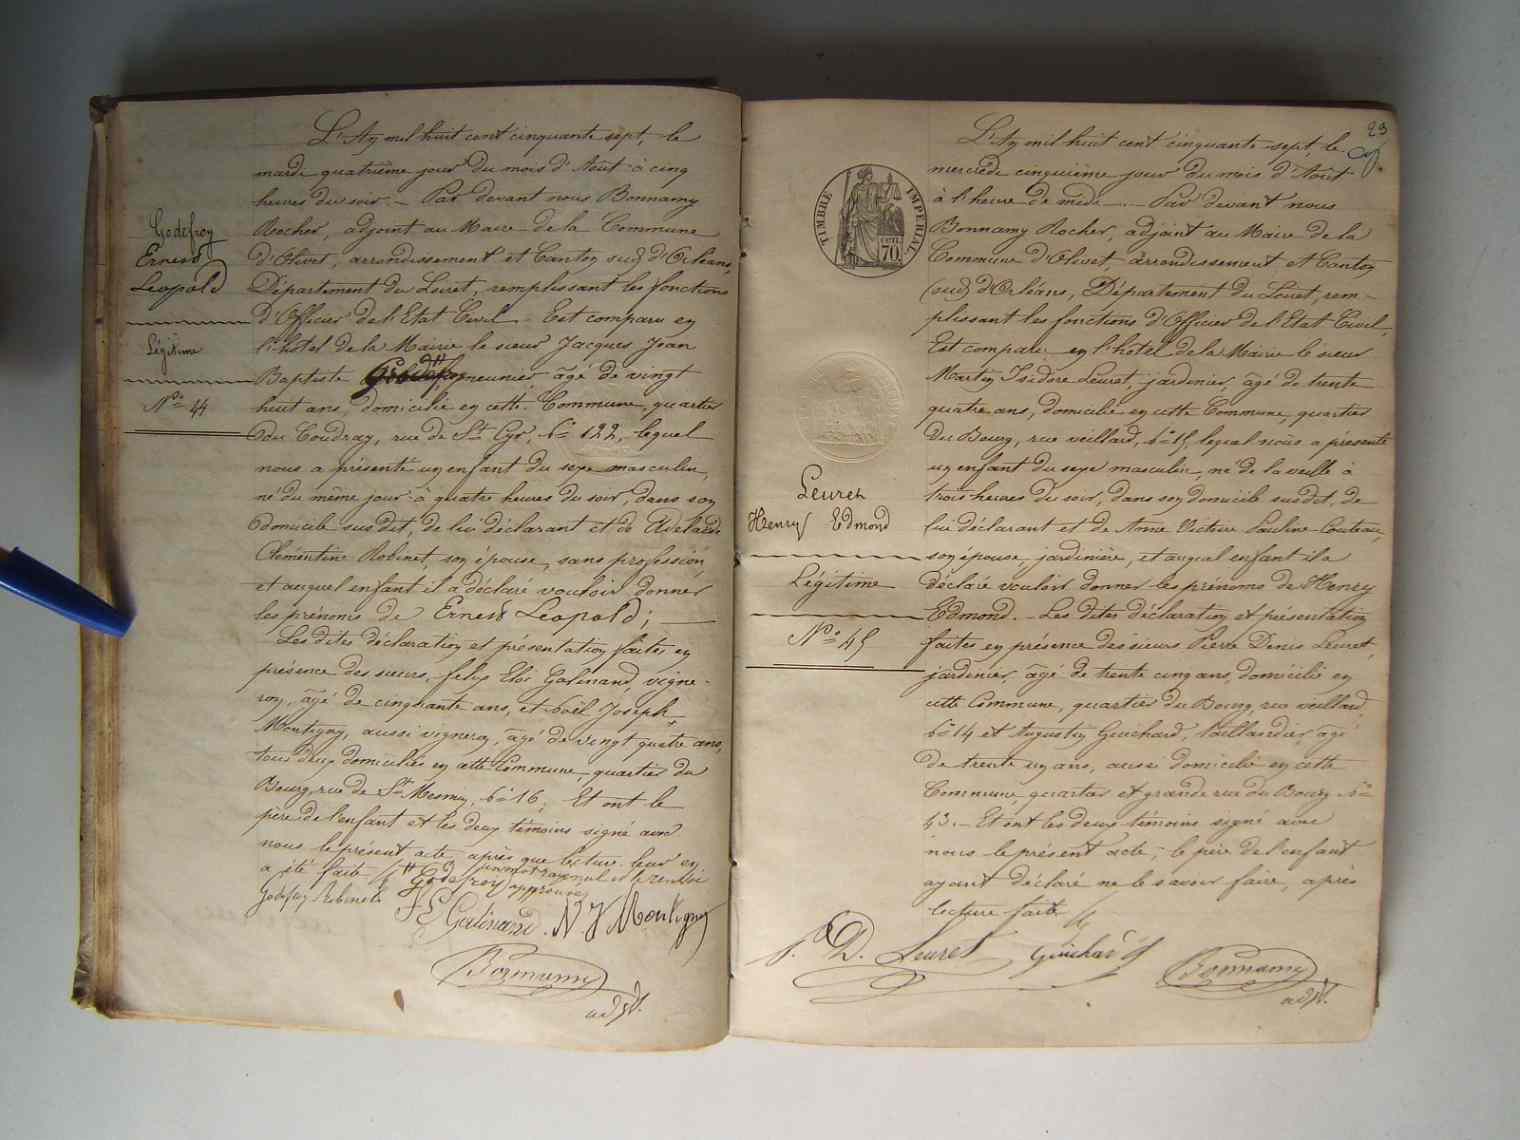 L'An mil huit cent cinquante sept, le
mardi quatrième jour du mois d'Août à cinq
heures du soir. — Par devant nous Bonnamy
Rocher, adjoint au Maire de la Commune
d'Olivet, arrondissement et Canton sud d'Orléans,
Département du Loiret, remplissant les fonctions
d'Officier de l'Etat Civil. Est comparu en
l'hôtel de la Mairie le sieur Jacques Jean
Baptiste meunier âgé de vingt
huit ans, domicilié en cette Commune, quartier
du Coudray, rue de St Cyr, No 122, lequel
nous a présenté un enfant du sexe masculin,
né du même jour à quatre heures du soir, dans son
domicile susdit, de lui déclarant et de Adélaïde
Clémentine Robinet, son épouse, sans profession,
et auquel enfant il a déclaré vouloir donner
les prénoms de Ernest Léopold; —
Les dites déclaration et présentation faites en
présence des sieurs, félix Eloi Galinand, vigne-
ron, âgé de cinquante ans, et Noël Joseph
Montigny, aussi vigneron, âgé de vingt quatre ans,
tous deux domiciliés en cette Commune, quartier du
Bourg, rue de St Mesmin, No 16; Et ont le
père de l'enfant et les deux témoins signé avec
nous le présent acte, après que lecture leur en
a été faite
Godefroy approuvé
Godefroy Robinet
F E Galinand. N. J Montigny
Bonnamy
adjt.
Godefroy
Ernest
Léopold
Légitime
No 44
23
L'An mil huit cent cinquante sept, le
mercredi cinquième jour du mois d'Août
à l'heure de midi. — Par devant nous
Bonnamy Rocher, adjoint au Maire de la
Commune d'Olivet, arrondissement et Canton
(sud) d'Orléans, Département du Loiret, rem-
plissant les fonctions d'Officier de l'Etat Civil,
Est comparu en l'hôtel de la Mairie le sieur
Martin Isidore Leuret, jardinier, âgé de trente
quatre ans, domicilié en cette Commune, quartier
du Bourg, rue veillard, No 15, lequel nous a présenté
un enfant du sexe masculin, né de la veille à
trois heures du soir, dans son domicile susdit, de
lui déclarant et de Anne Victoire Pauline Couteau,
son épouse, jardinière, et auquel enfant il a
déclaré vouloir donner les prénoms de Henry
Edmond. — Les dites déclaration et présentation
faites en présence des sieurs Pierre Denis Leuret,
jardinier âgé de trente cinq ans, domicilié en
cette Commune, quartier du Bourg, rue veillard,
No 14 et Augustin Guichard, taillandier, âgé
de trente un ans, aussi domicilié en cette
Commune, quartier et grande rue du Bourg No
43. — Et ont les deux témoins signé avec
nous le présent acte, le père de l'enfant
ayant déclaré ne le savoir faire, après
lecture faite
P. D. Leuret Guichard
Bonnamy
adjt.
TIMBRE IMPERIAL
70
Leuret
Henry Edmond
Légitime
No 45